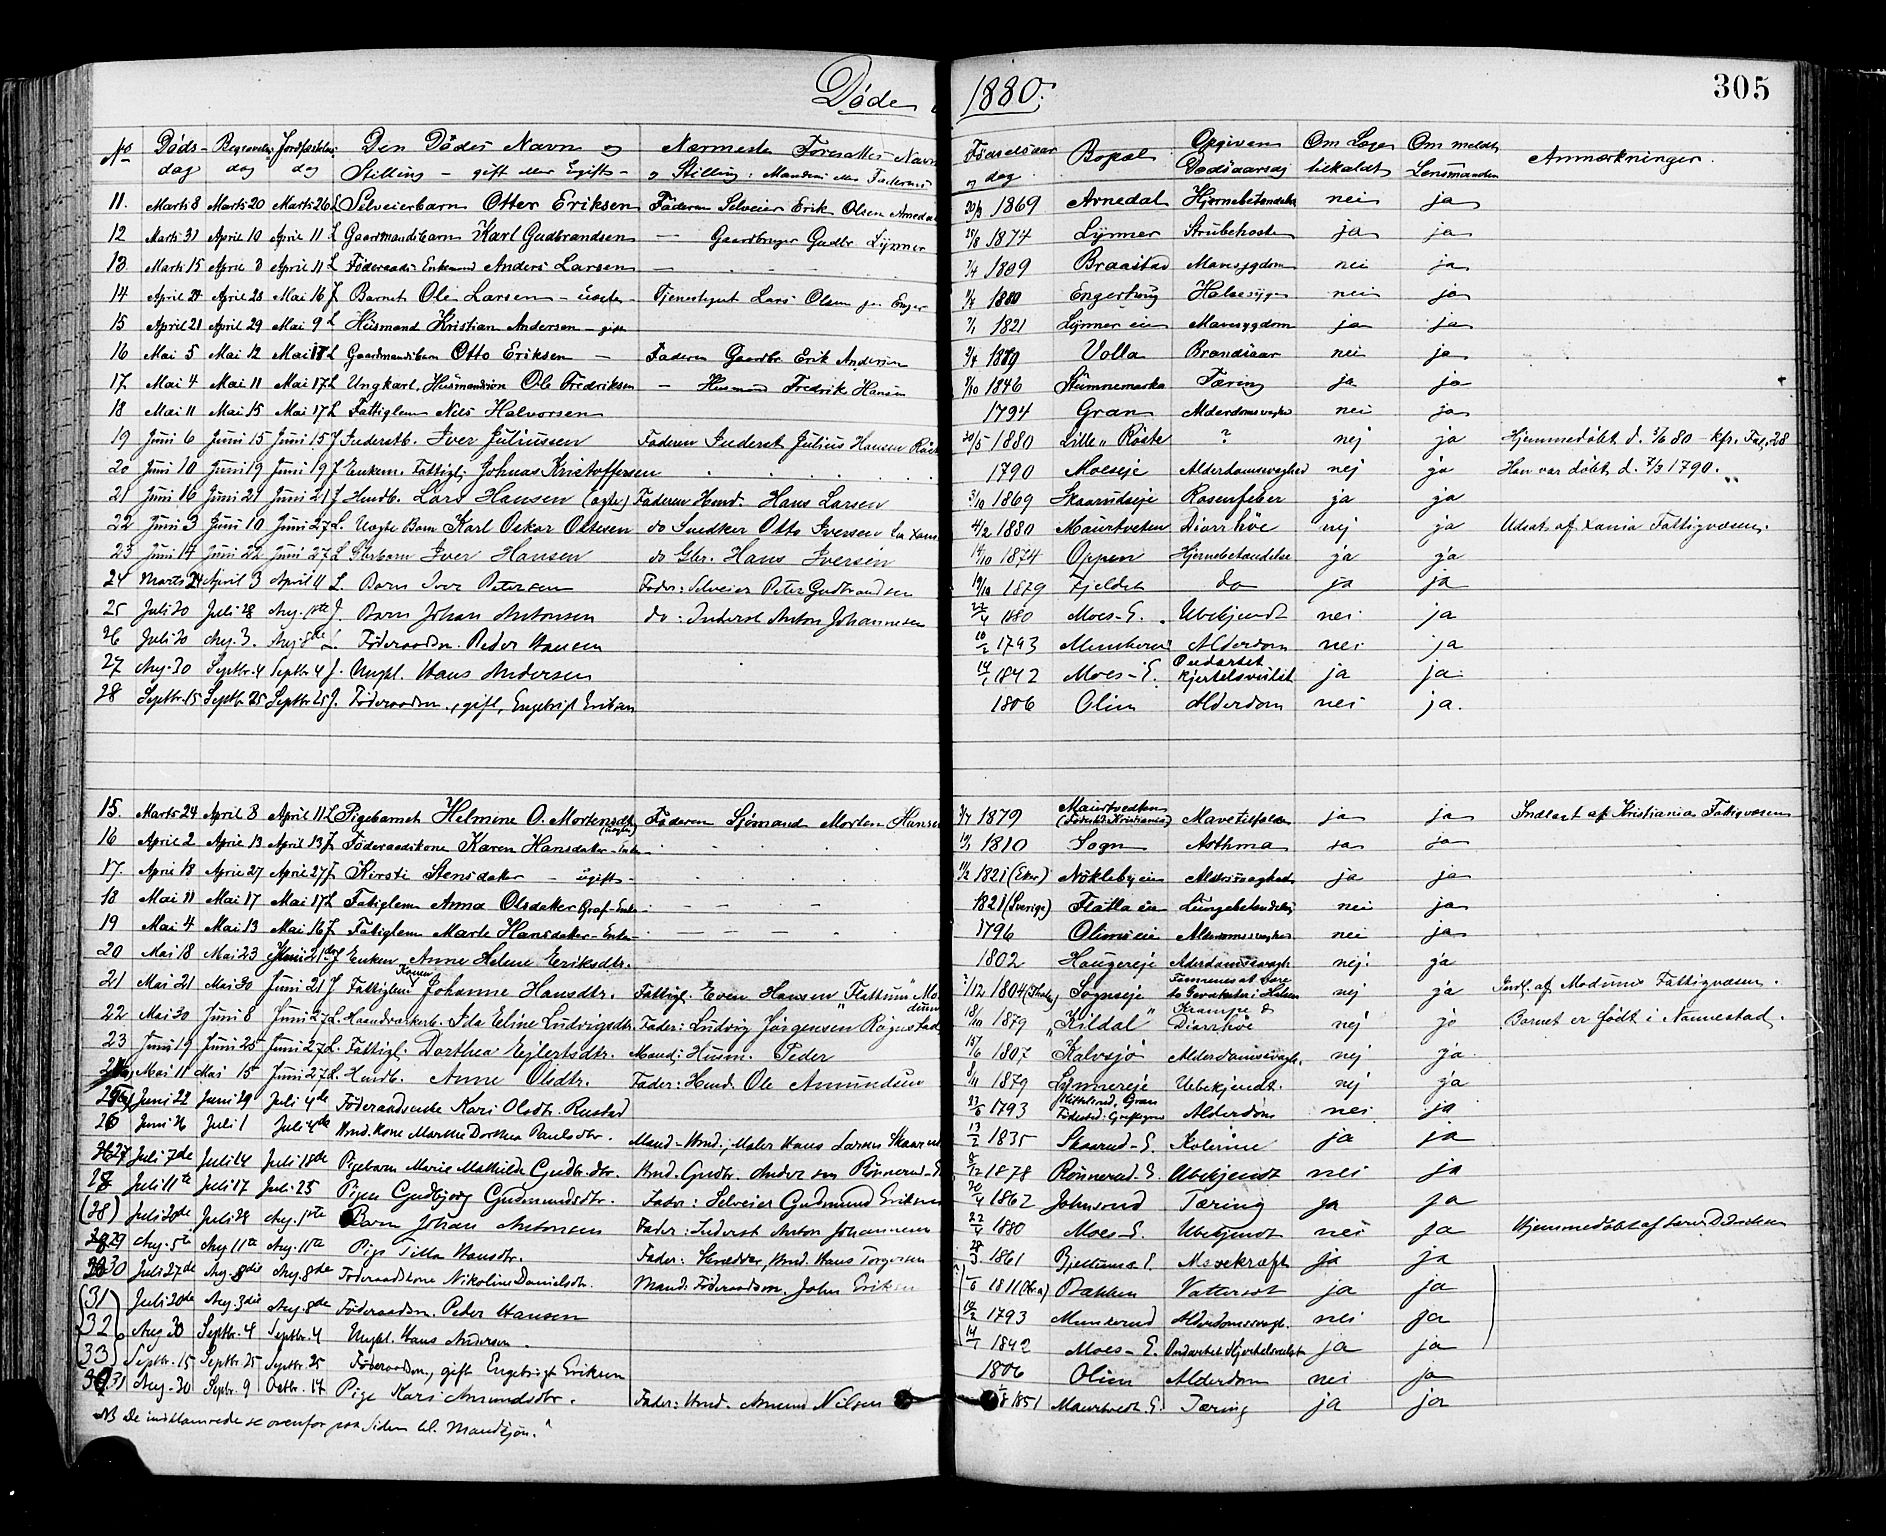 Döde 1880. 305
No Döds-dag Begravelsesdag Jordfæstelsesdag Den Dödes Navn og Stilling - gift eller Ugift - Nærmeste Foresattes Navn og Stilling: Mandens eller Faderens Fødselsaar og dag Bopæl Opgiven Dødsaarsag Om Læge tilkaldt Om meldt Lensmanden Anmærkninger.
11. Marts 8 Marts 20 Marts 26 L Selveierbarn Otter Eriksen Faderen Selveier Erik Olsen Arnedal 1869 Arnedal Hjernebetændelse nei ja
12 Marts 31 April 10 April 11 L Gaardmandsbarn Karl Gudbrandsen — Gaardbruger Gudbr. Lynner 25/8 1874 Lynner Strubehoste ja ja
13. Marts 15 April 3 April 11 L Föderaads Enkemand Anders Larsen — 1809 Braastad Mavesygdom nei ja
14 April 24 April 28 Mai 16 J Barnet Ole Larsen - uægte - Tjenestegut Lars Olsen Enger 1880 Engerhaug Halsesyge nei ja
15 April 21 April 29 Mai 9 L Husmand Kristian Andersen - gift 1821 Lynner eie Mavesygdom ja ja
16 Mai 5 Mai 12 Mai 17 L Gaardmandsbarn Otto Eriksen — Faderen Gaardbr. Erik Andersen 1879 Volla Brandsaar nei ja
17. Mai 4 Mai 11 Mai 17 L Ungkarl, Husmandssøn Ole Fredriksen — Husmand Fredrik Hansen 1846 Stumnemarka Tæring ja ja
18 Mai 11 Mai 15 Mai 17 L Fattiglem Nils Halvorsen 1794 Gran Alderdomssvaghed nei ja
19 Juni 6 Juni 15 Juni 15 J Inderstb. Iver Juliussen Faderen Inderst Julius Hansen 20/5 1880 Lille Röste ? nej ja Hjemmedöbt d. 3/6 80 - kfr. Fol. 28
20 Juni 10 Juni 19 Juni 19 J Enkem. Fattigl. Johnas Kristoffersen 1790 Moeseje Alderdomssvaghed nej ja Han var döbt d. 7/3 1790.
21 Juni 16 Juni 21 Juni 21 J Hmdb. Lars Hansen (ægte) Faderen Hmd. Hans Larsen 3/10 1869 Skaarudseje Rosenfeber ja ja
22 Juni 3 Juni 10 Juni 27 L. Uægte Barn Karl Oskar Ottesen do Snedker Otto Iversen 4/2 1880 Maurtveten Diarrhöe nej ja Udsat af Xania Fattigvæsen.
23 Juni 14 Juni 22 Juni 27 L Gbrbarn Iver Hansen do Gbr. Hans Iversen 14/10 1874 Oppen Hjernebetændelse ja ja
24 Marts 24 April 3 April 11 L. Barn Iver Petersen Fader: Selveier Peter Gudbrandsen 19/10 1879 Fjeldet do ja ja
25 Juli 20 Juli 28 Aug. 1ste J. Barn Johan Antonsen do: Inderst Anton Johannesen 22/4 1880 Moes-E. Ubekjendt nei ja
26 Juli 20 Aug. 3. Aug. 8de L. Föderaadsm. Peder Hansen 10/2 1793 Munkerud Alderdom nei ja
27 Aug. 30 Septbr. 4 Septbr. 4 J. Ungkl. Hans Andersen 14/1 1842 Moes-E. Ondartet Kjertelsvulst ja ja
28 Septbr. 15 Septbr. 25 Septbr. 25 J. Föderaadsm., gift, Engebrigt Eriksen 1806 Olim Alderdom nei ja.
15. Marts 24 April 8 April 11 L Pigebarnet Helmine O. Mortensdtr. (uægte) Faderen Sjömand Morten Hansen 1879 Maurtvedten (Födested: Kristiania) Mavetilfælde ja ja Indlagt af Kristiania Fattigvæsen
16 April 2 April 13 April 13 J Föderaadskone Karen Hansdatter - Enke 1810 Sogn Asthma ja ja
17. April 18 April 27 April 27 J Kirsti Stensdatter - ugift - 1821 (Eker) Nöklebyeie Alderssvaghed ja ja
18 Mai 11 Mai 17 Mai 17 L Fatiglem Anna Olsdatter Graf - Enke - 1821 (Sverige) Flatla eie Lungebetændelse nei ja
19 Mai 4 Mai 13 Mai 16 J Fatiglem Marte Hansdatter - Enke - 1796 Olimseie Alderdomssvaghed nei ja
20 Mai 18 Mai 23 Juni 21 J Enken Anne Helene Eriksdtr. 1802 Haugereje Alderdomssvagh. nej. ja
21 Mai 21 Mai 30 Juni 21 J Fattiglem Konen Johanne Hansdtr. Fattigl. Even Hansen Flattum Modum 1/12 1804 Sogneseje nej ja Indl. af Modums Fattigvæsen.
22 Mai 30 Juni 8 Juni 27 L. Haandværkerb. Ida Eline Ludvigsdtr. Fader: Ludvig Jörgensen Rognstad 18/10 1879 "Kildal" Krampe & Diarrhöe nej ja Barnet er födt i Nannestad.
23 Juni 19 Juni 25 Juni 27 L. Fattigl. Dorthea Ejlertsdtr. Mand: Husm. Peder 15/6 1807 Kalvsjö Alderdomssvagh. nej ja.
24 Mai 11 Mai 15 Juni 27 L. Hmdb. Anne Olsdtr. Fader: Hmd. Ole Amundsen 8/11 1879 Lynnereje Ubekjendt. nej ja
25 Juni 22 Juni 29 Juli 4de Föderaadsenke Kari Olsdtr. Rustad 23/6 1793 Alderdom nei ja
26 Juni 26 Juli 1 Juli 4de Hmd. Kone Marthe Dorthea Paulsdtr. Mand - Hmd., Maler Hans Larsen Skaarud 13/2 1835 Skaarud-E. Kolerine ja ja
27 Juli 7de Juli 14 Juli 18de Pigebarn Marie Mathilde Gudbr.dtr. Hmd. Gudbr. Andersen Rönnerud-E 8/12 1878 Rönnerud-E Ubekjendt nei ja
28 Juli 11te Juli 17 Juli 25 Pigen Gudbjorg Gudmundsdtr. Fader: Selveier Gudmund Eriksen 20/4 1862 Johnsrud Tæring ja ja
(28) Juli 20de Juli 28 Aug. 1ste Barn Johan Antonsen Fader: Inderst Anton Johannesen 22/4 1880 Moes-E. Ubekjendt nei ja Hjemmedöbt af
29 Aug. 5te Aug 11te Aug. 11te Pige Tilla Hansdtr. Fader: Skrædder, Hmd. Hans Torgersen 28/3 1861 Bjellums E. Mavekræft ja ja
30 Juli 27de Aug. 8de Aug. 8de Föderaadskone Nikoline Danielsdtr. Mand: Föderaadsm. John Eriksen 1811 Bakken Vattersot ja ja
(31) Juli 20de Aug. 3die Aug. 8de Föderaadsm. Peder Hansen 10/2 1793 Munkerud Alderdomssvagh. nei ja
(32) Aug 30 Septbr. 4 Septbr. 4 Ungkl. Hans Andersen. 14/1 1842 Moes-E. Ondartet Kjertelsvulst ja ja
(33) Septbr. 15 Septbr. 25 Septbr. 25 Föderaadsm., gift Engebrigt Eriksen 1806 Olim Alderdom nei ja
31 Aug. 30 Septbr. 9 Octbr. 14 Pige Kari Amundsdtr. Fader: Hmd. Amund Nilsen 1851 Maurtvedt E. Tæring ja ja
NB De indklamrede se ovenfor paa Siden til Mandkjön.